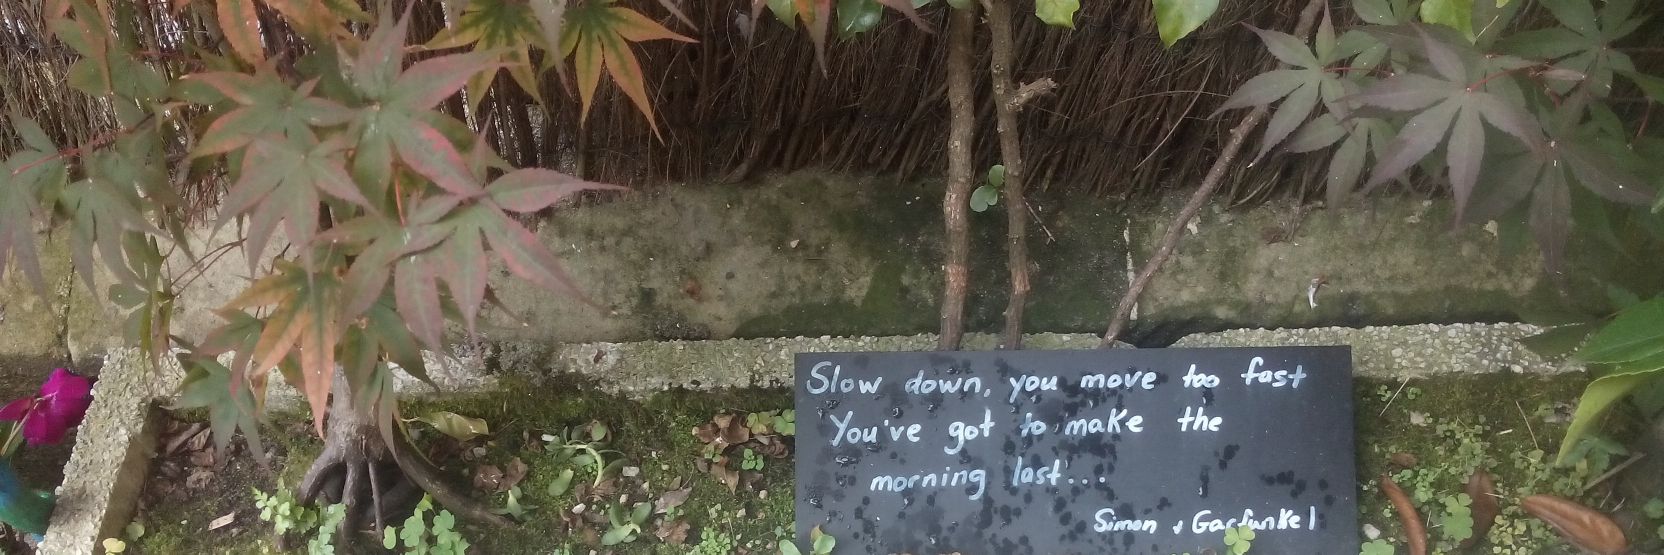 Slow down, you move too fast
You've got to make the
morning last...
Simon + Garfunkel